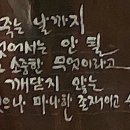 죽는 날까지
없어서는 안 될
소중한 무엇이라고
깨닫지 않는
있으나 마나한 존재이고